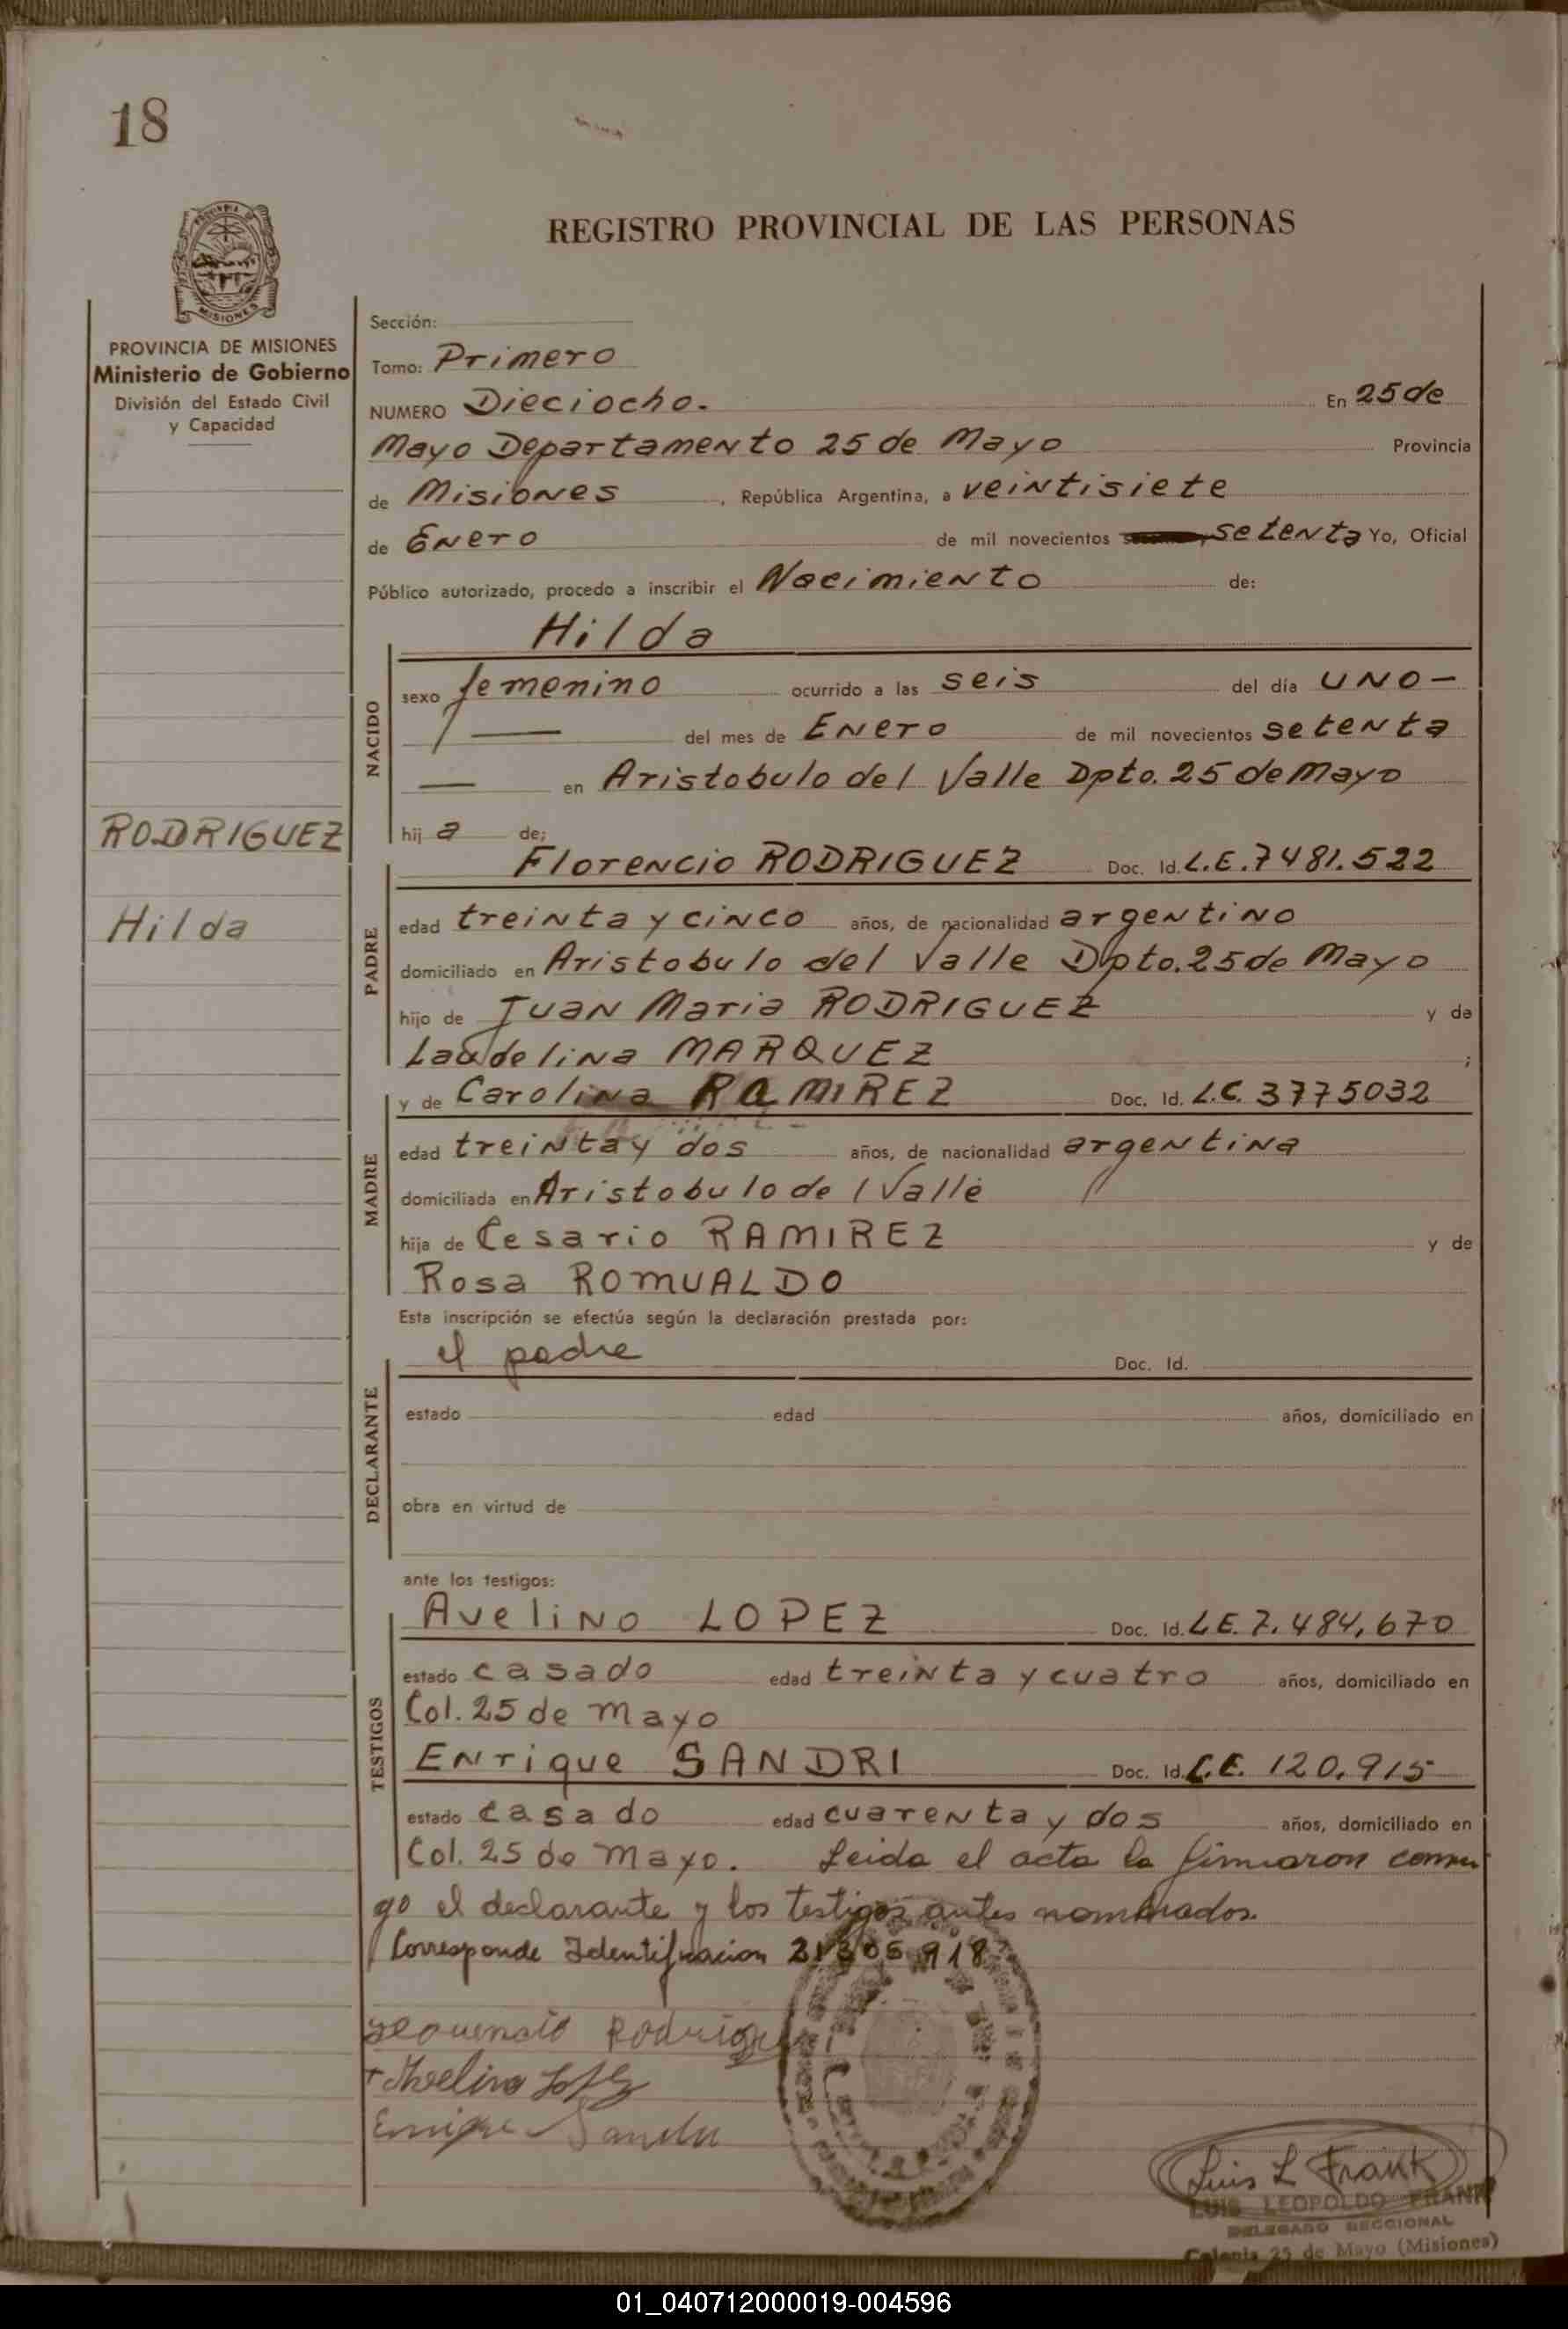 18
REGISTRO PROVINCIAL DE LAS PERSONAS
PROVINCIA DE MISIONES
Ministerio de Gobierno
División del Estado Civil
y Capacidad
RODRIGUEZ
Hilda
Sección:
Tomo: Primero
NUMERO Dieciocho. En 25 de
Mayo Departamento 25 de Mayo Provincia
de Misiones, República Argentina, a veintisiete
de Enero de mil novecientos setenta Yo, Oficial
Público autorizado, procedo a inscribir el Nacimiento de:
NACIDO
Hilda
sexo femenino ocurrido a las seis del día UNO-
/ — del mes de Enero de mil novecientos setenta
— en Aristobulo del Valle Dpto. 25 de Mayo
hij a de:
PADRE
Florencio RODRIGUEZ Doc. Id. L.E. 7481.522
edad treinta y cinco años, de nacionalidad argentino
domiciliado en Aristobulo del Valle Dpto. 25 de Mayo
hijo de Juan Maria RODRIGUEZ y de
Laudelina MARQUEZ ;
MADRE
y de Carolina RAMIREZ Doc. Id. L.C. 3775032
edad treinta y dos años, de nacionalidad argentina
domiciliada en Aristobulo del Valle
hija de Cesario RAMIREZ y de
Rosa ROMUALDO
Esta inscripción se efectúa según la declaración prestada por:
DECLARANTE
el padre Doc. Id.
estado edad años, domiciliado en
obra en virtud de
ante los testigos:
TESTIGOS
Avelino LOPEZ Doc. Id. L.E. 7.484.670
estado casado edad treinta y cuatro años, domiciliado en
Col. 25 de Mayo
Enrique SANDRI Doc. Id. C.E. 120.915
estado casado edad cuarenta y dos años, domiciliado en
Col. 25 de Mayo. Leida el acta la firmaron conmi
go el declarante y los testigos antes nombrados.
Corresponde Identificacion 21305918
Rodriguez
Avelino Lopez
Enrique Sandri
Luis L Frank
LUIS LEOPOLDO FRANK
DELEGADO SECCIONAL
Colonia 25 de Mayo (Misiones)
01_040712000019-004596